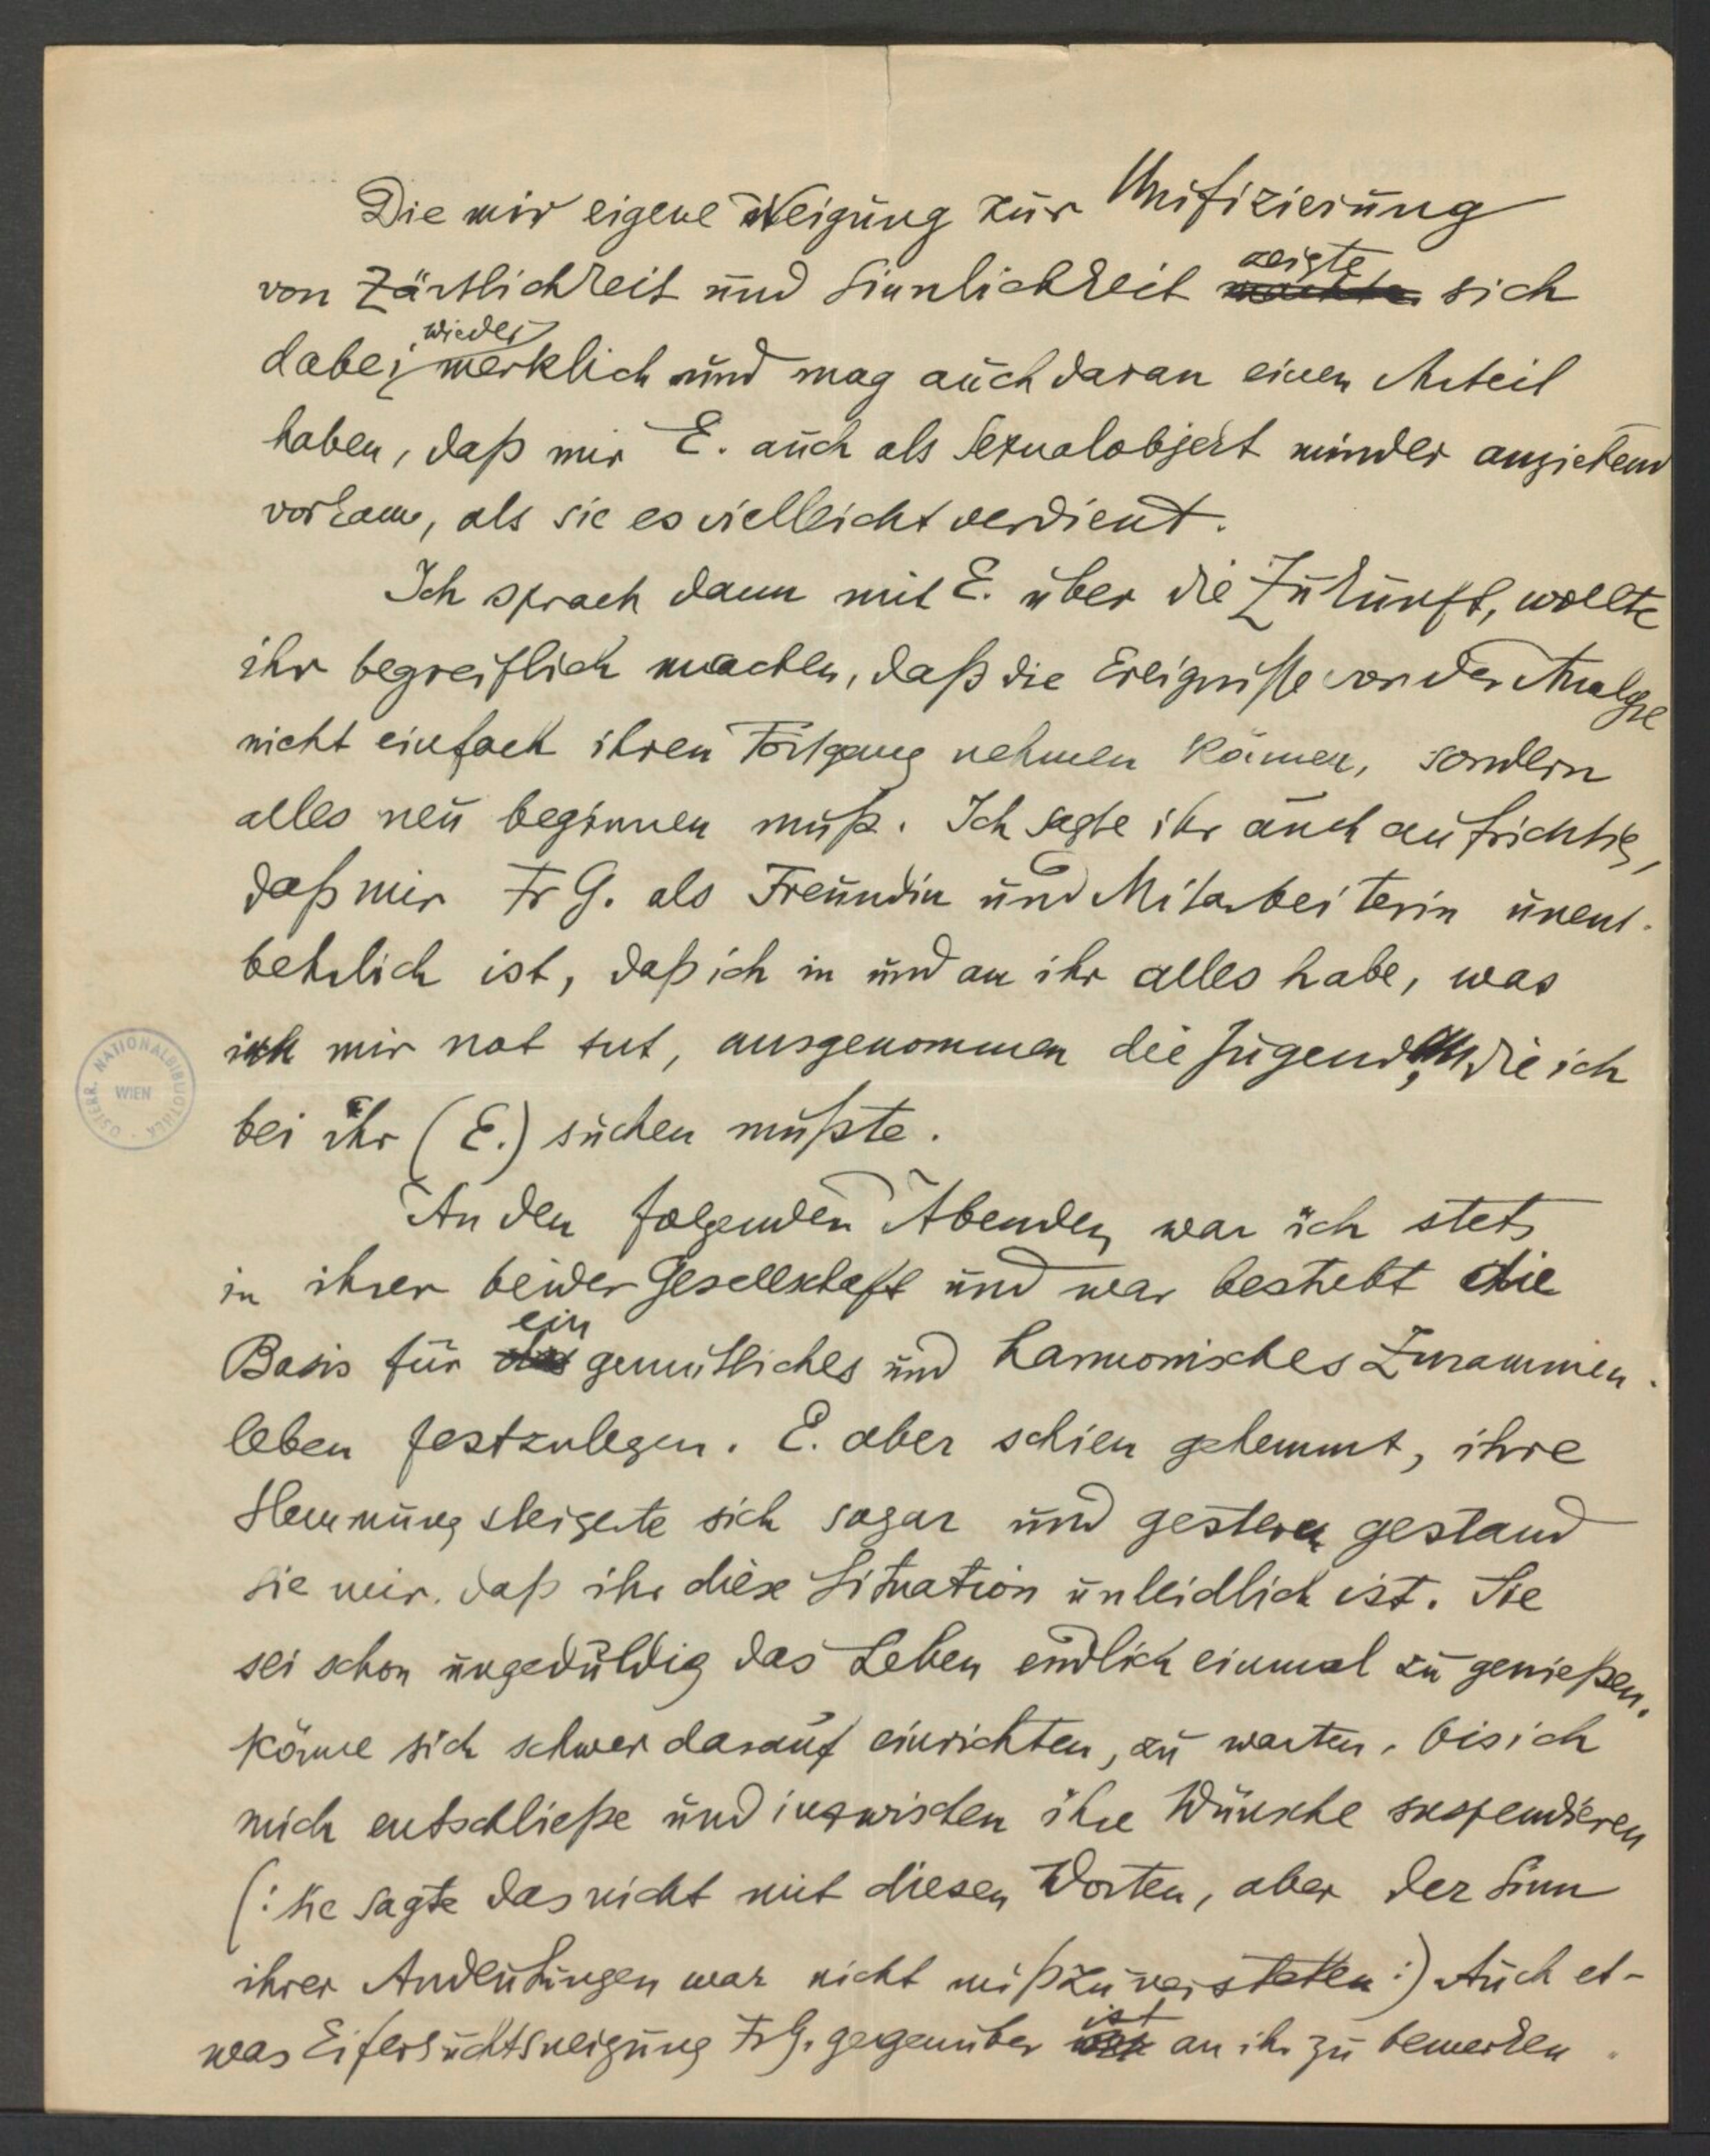 Die mir eigene Neigung zur Unifizierung
von Zärtlichkeit und Sinnlichkeit zeigte sich
dabei wieder merklich und mag auch daran einen Anteil
haben, daß mir E. auch als Sexualobjekt minder anziehend
vorkam, als sie es vielleicht verdient.
Ich sprach dann mit E. über die Zukunft, wollte
ihr begreiflich machen, daß die Ereignisse vor der Analyse
nicht einfach ihren Fortgang nehmen können, sondern
alles neu beginnen muß. Ich sagte ihr auch aufrichtig,
daß mir Fr G. als Freundin und Mitarbeiterin unent-
behrlich ist, daß ich in und an ihr alles habe, was
mir not tut, ausgenommen die Jugend, die ich
bei ihr (E.) suchen müßte.
An den folgenden Abenden war ich stets
in ihrer beider Gesellschaft und war bestrebt die
Basis für ein gemütliches und harmonisches Zusammen-
leben festzulegen. E. aber schien gehemmt, ihre
Hemmung steigerte sich sogar und gestern gestand
sie mir, daß ihr diese Situation unleidlich ist. Sie
sei schon ungeduldig das Leben endlich einmal zu genießen,
könne sich schwer darauf einrichten, zu warten, bis ich
mich entschließe und inzwischen ihre Wünsche suspendieren
(: sie sagte das nicht mit diesen Worten, aber der Sinn
ihrer Andeutungen war nicht mißzuverstehen :) Auch et-
was Eifersuchtsneigung Fr G. gegenüber ist an ihr zu bemerken.
ÖSTERR. NATIONALBIBLIOTHEK
WIEN